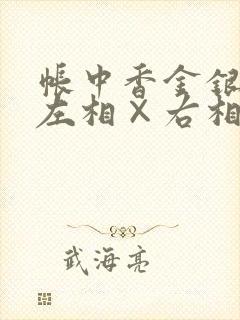 帐中香金银
左相×右相
武海亮